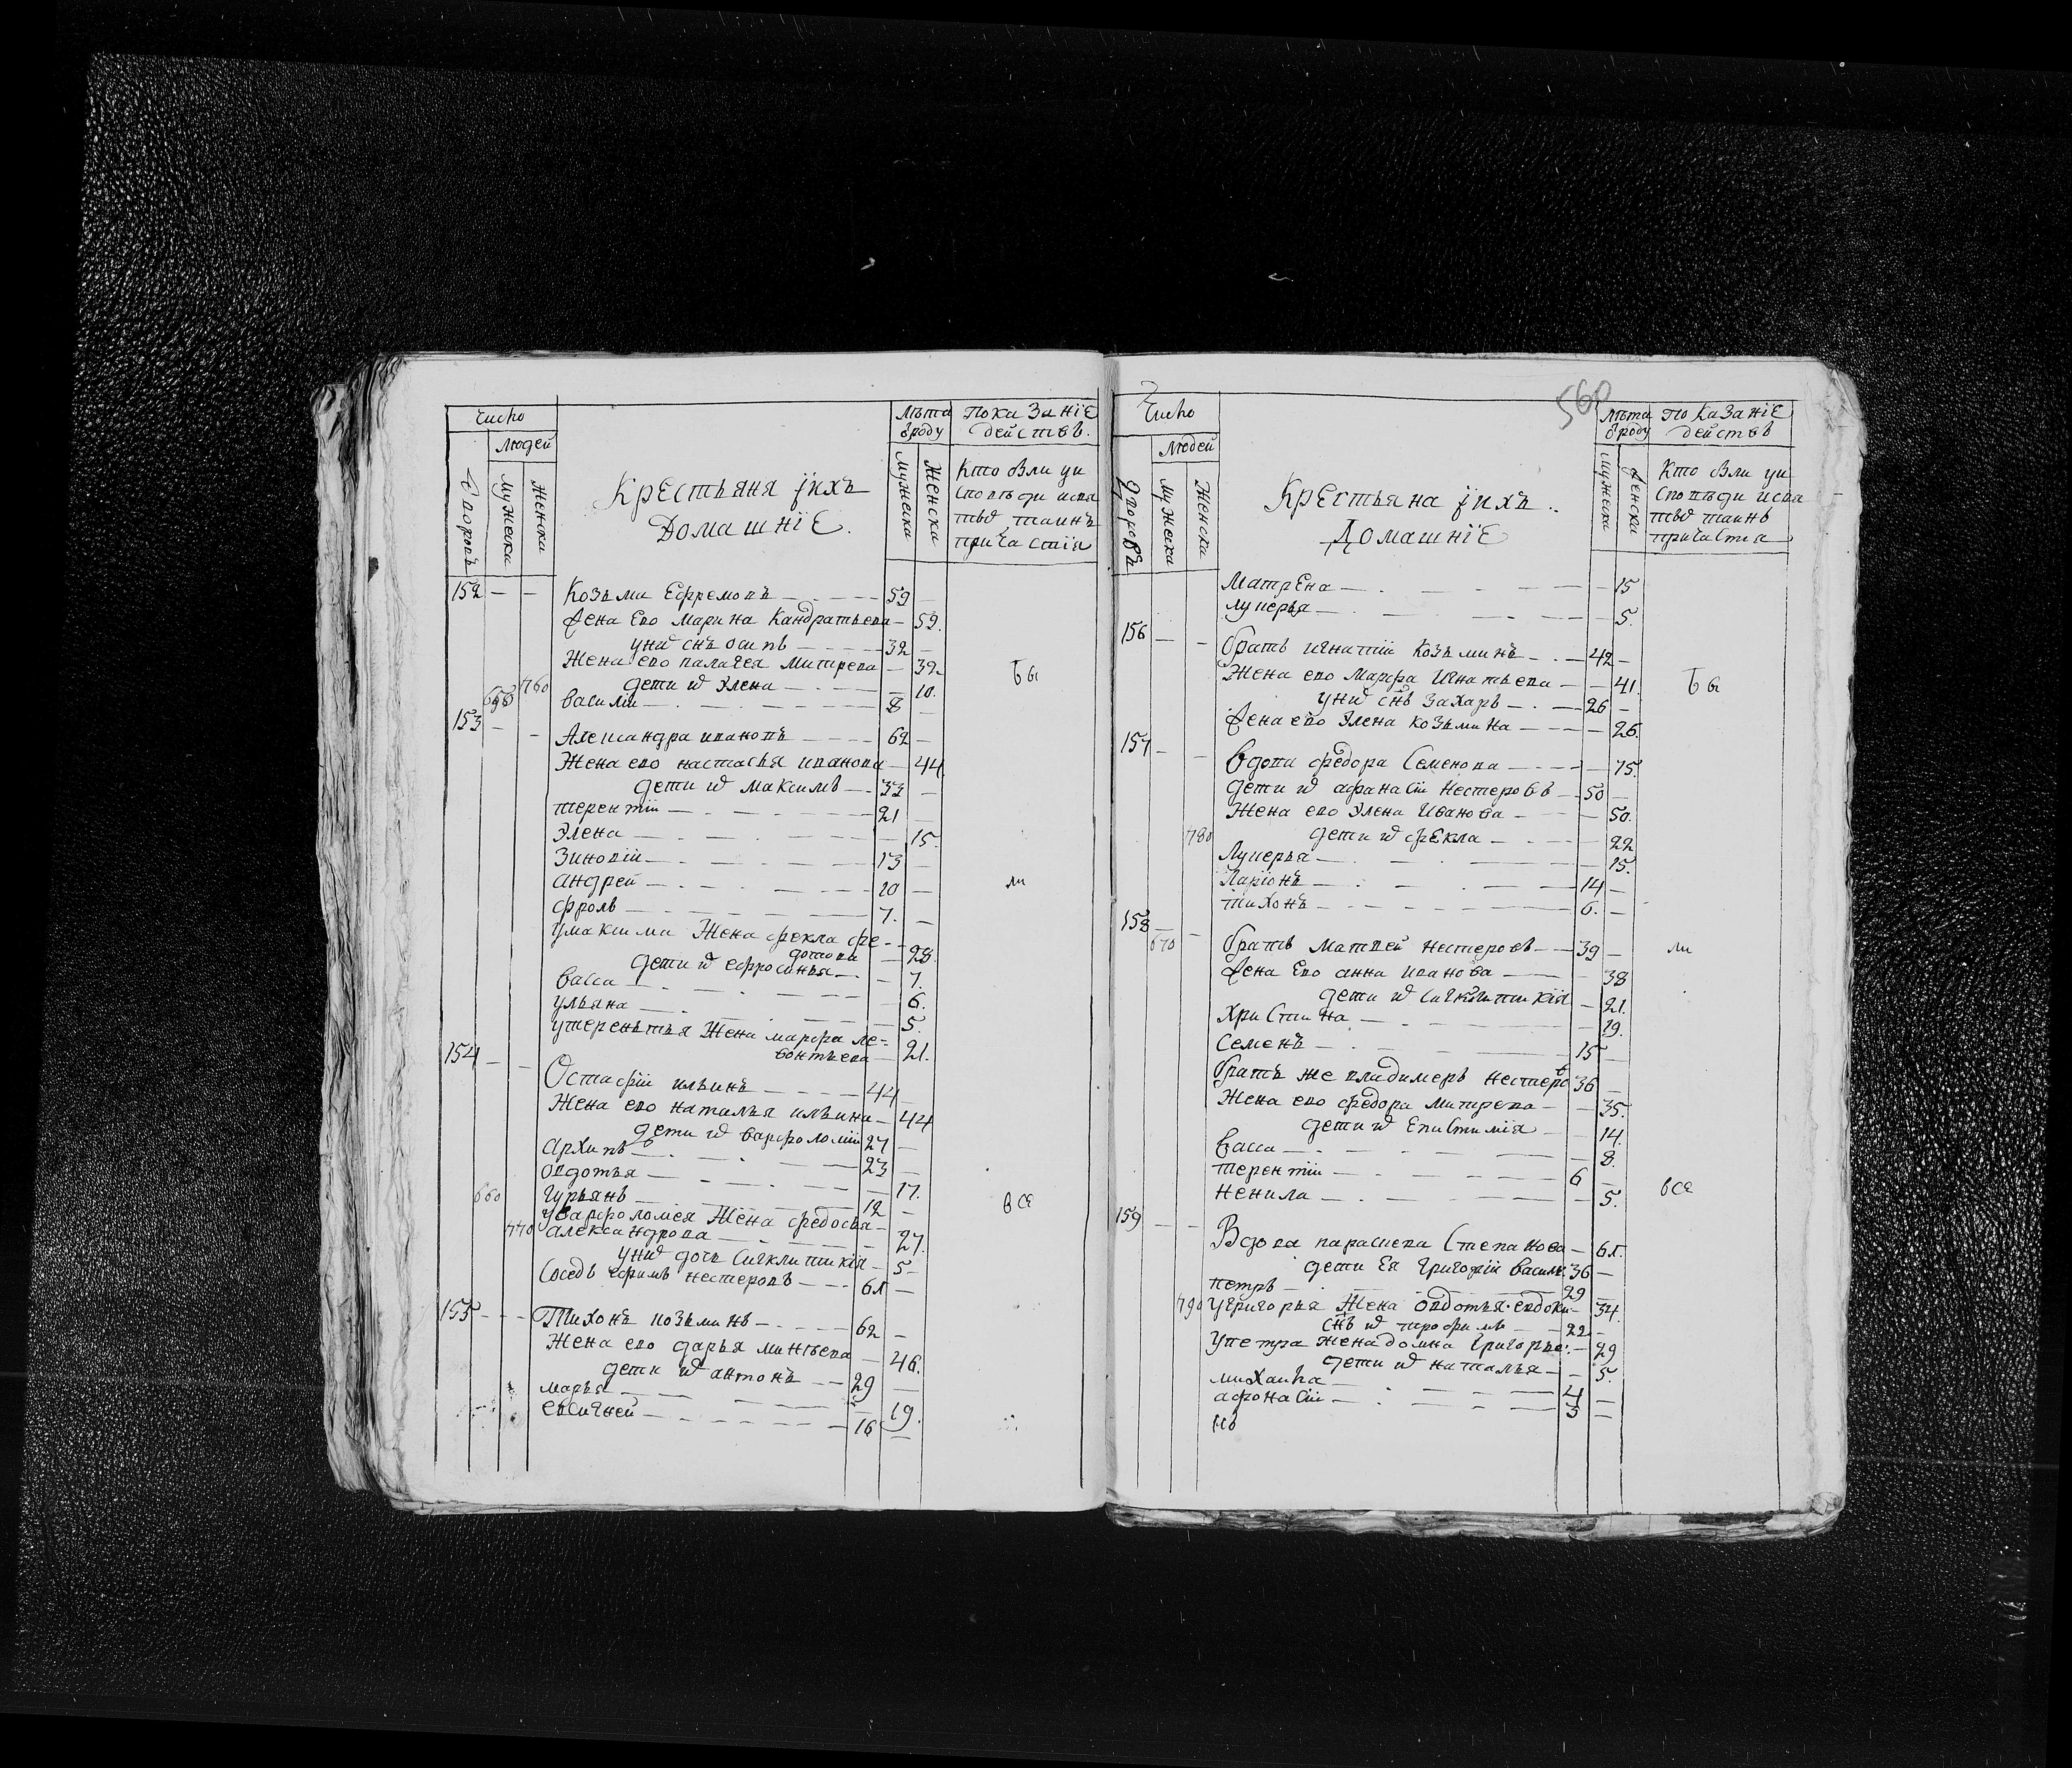 Число
Людей
Дворовъ
Мужеска
Женска
Крестьяня ихъ
Домашніе.
Лѣта
ѿроду
Мужеска
Женска
Показаніе
действъ.
Кто были уи
споведи исвя
тыѿ таинъ
причастія
152 — — Козьми Ефремовъ — 59 —
Жена ево Марина Кандратьева — 59.
униѿ снъ Осипъ — 32 —
Жена ево палагея Митрева — 32
760 дети иѿ Элена — 10.
василіи — 8 —
Бы
153 — — Алеѯандра ивановъ — 62 —
Жена ево настасья иванова — 44
дети иѿ максимъ — 33 —
терентіи — 21 —
Элена — 15.
Зиновіи — 13 —
андрей — 10 —
фролъ — 7. —
умаксима Жена фекла фе-
дотова — 28.
дети иѿ ефросинья — 7.
васса — 6.
ульяна — 5.
утереньтья Жена марфа ле=
вонтьева — 21.
ли
154 — — Остафіи ильинъ — 44 —
Жена ево наталья ильина — 44
дети иѿ варфоломіи 27 —
архипъ — 23 —
овдотья — 17.
660 гурьянъ — 12 —
уварфоломея Жена федосья —
770 александрова — 27.
униѿ дочь Сигклитикія — 5 —
Соседъ ефимъ нестеровъ — 61 —
все
155 — — Тихонъ козьминъ — 62 —
Жена ево дарья минеева — 46.
дети иѿ антонъ — 29 —
марья — 19.
евсигней — 16 —
560
Число
Людей
Дворовъ
Мужеска
Женска
Крестьяна ихъ
Домашніе
Лѣта
ѿроду
Мужеска
Женска
показаніе
действъ
Кто были уи
споведи исвя
тыѿ таинъ
причастиа
Матрена — 15
лукерья — 5.
156 — — братъ игнатіи Козьминъ — 42 —
Жена ево Марфа Игнатьева — 41.
униѿ снъ Захаръ — 26 —
Жена ево Элена козьмина — 26.
Бы
157 — — вдова федора Семенова — 75.
дети иѿ афанасіи Нестеровъ — 50 —
Жена ево Элена Иванова — 50.
780 дети иѿ фекла — 22
Лукерья — 15.
Ларіонъ — 14 —
тихонъ — 6. —
158 —
670 братъ Матвей нестеровъ — 39 —
Жена Ево анна иванова — 38
дети иѿ Сигклитикія — 21.
Христина — 19.
Семенъ — 15 —
братъ же владимеръ нестеровъ 36 —
Жена ево федора митрева — 35.
дети иѿ Епистимія — 14.
васса — 8.
терентіи — 6 —
ненила — 5.
ли
все
159 — — Вдова параскева Степанова — 61.
дети Ея Григорій васильи 36 —
петръ — 29 —
790 угригорья Жена овдотья евдоки — 34.
снъ иѿ трофимъ — 22 —
упетра Жена домна григорьева — 29
дети иѿ наталья — 5.
михаила — 4 —
афонасіи — 3 —